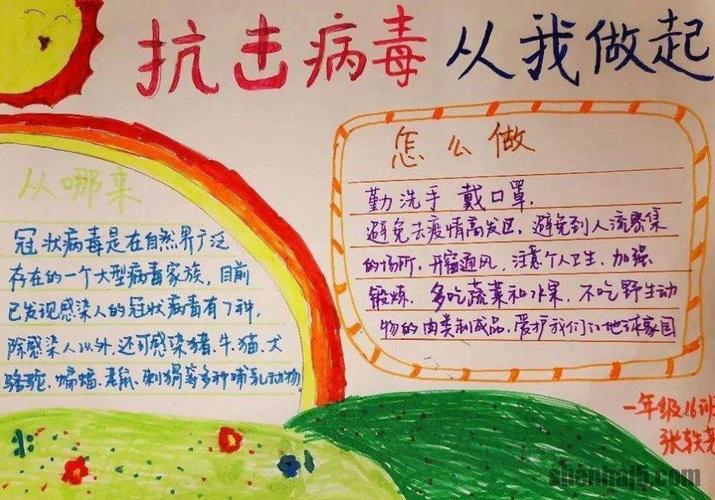 抗击病毒 从我做起
从哪来
冠状病毒是在自然界广泛
存在的一个大型病毒家族,目前
已发现感染人的冠状病毒有7种,
除感染人以外,还可感染猪、牛、猫、犬
骆驼、蝙蝠、老鼠、刺猬等多种哺乳动物
怎么做
勤洗手 戴口罩,
避免去疫情高发区,避免到人流密集
的场所,开窗通风,注意个人卫生,加强
锻炼,多吃蔬菜和水果,不吃野生动
物的肉类制成品,爱护我们的地球家园
一年级16班
张轶
shenhai5.com